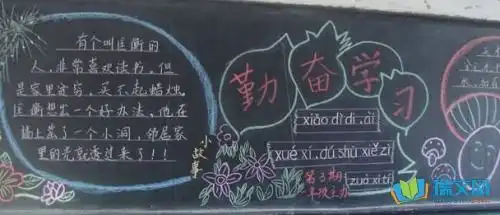 有个叫匡衡的
人，非常喜欢读书，但
是家里贫穷，买不起蜡烛。
匡衡想出一个好办法，他在
墙上凿了一个小洞，邻居家
里的光就透过来了！！
小故事
勤奋学习
xiǎo dì di, ài
xué xí, dú shū xiě zì
zuò xí tí
第3期
年级主办
儒文网